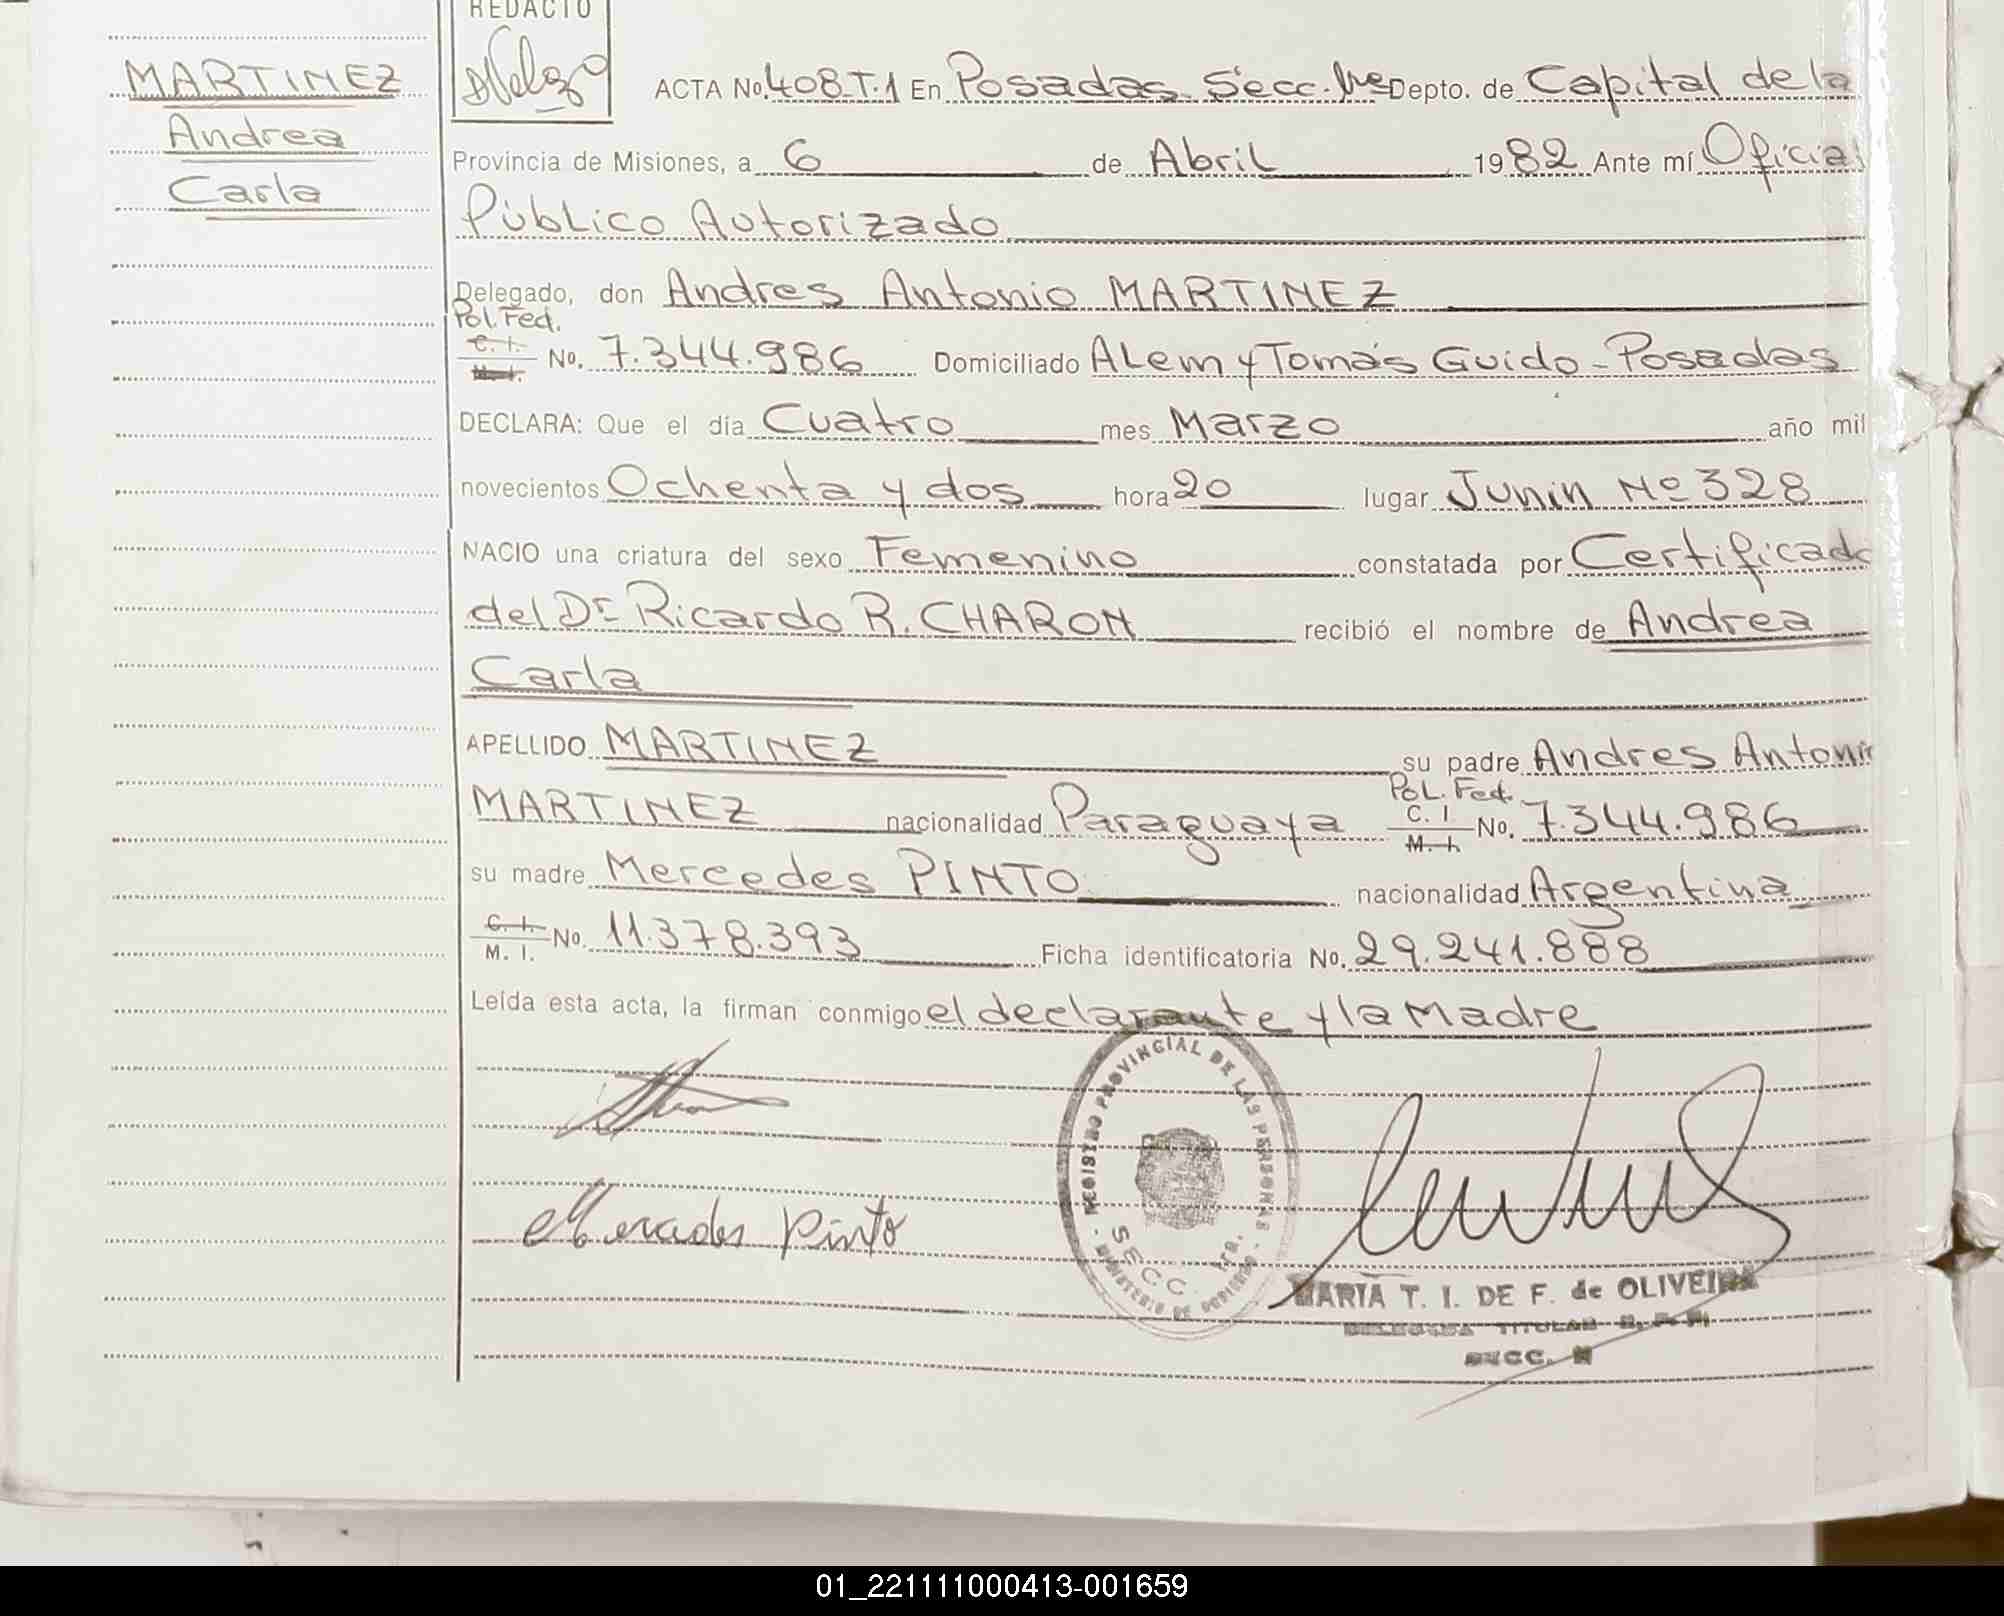 REDACTO
MARTINEZ
Andrea
Carla
ACTA No. 408-T.1 En Posadas Secc. 1ra Depto. de Capital de la
Provincia de Misiones, a 6 de Abril 1982 Ante mí Oficial
Público Autorizado
Delegado, don Andres Antonio MARTINEZ
Pol. Fed.
C. I. No. 7.344.986 Domiciliado ALem y Tomás Guido - Posadas
DECLARA: Que el día Cuatro mes Marzo año mil
novecientos Ochenta y dos hora 20 lugar Junin Nº 328
NACIO una criatura del sexo Femenino constatada por Certificado
del Dr Ricardo R. CHARON recibió el nombre de Andrea
Carla
APELLIDO MARTINEZ su padre Andres Antoni
Pol. Fed.
MARTINEZ nacionalidad Paraguaya C. I. M. I. No. 7.344.986
su madre Mercedes PINTO nacionalidad Argentina
C. I. M. I. No. 11.378.393 Ficha identificatoria No. 29.241.888
Leída esta acta, la firman conmigo el declarante y la Madre
REGISTRO PROVINCIAL DE LAS PERSONAS
SECC. 1ra.
MINISTERIO DE GOBIERNO
Mercedes Pinto
MARIA T. I. DE F. de OLIVEIRA
DELEGADA TITULAR
SECC.
01_221111000413-001659